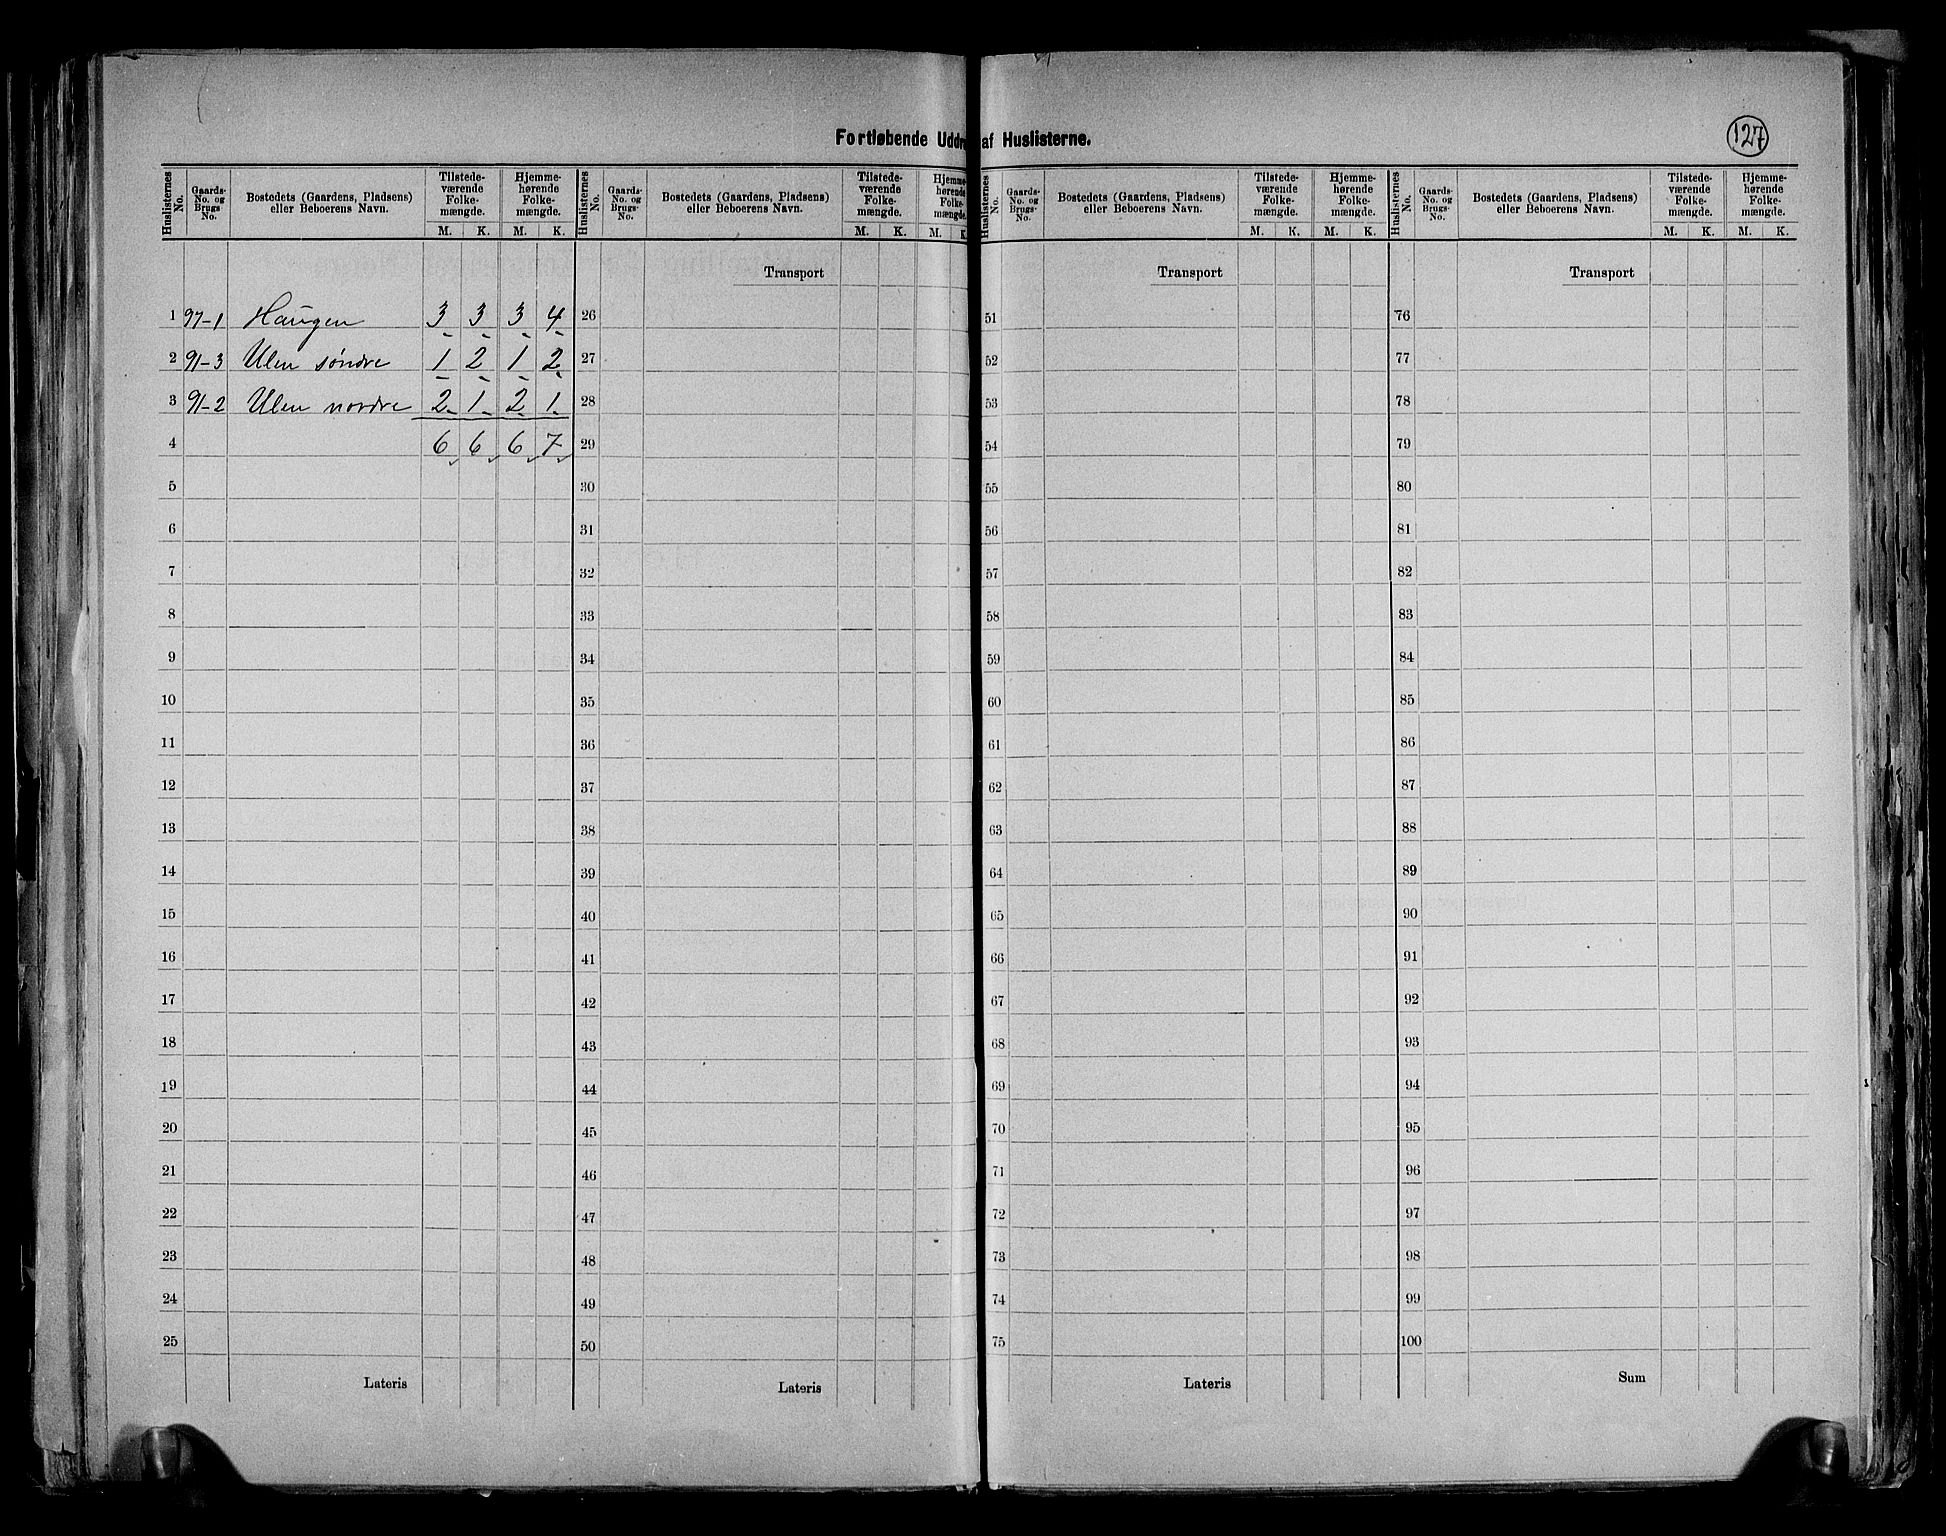 Fortløbende Uddr af Huslisterne.
127
Huslisternes No. Gaards-No. og Brugs-No. Bostedets (Gaardens, Pladsens) eller Beboerens Navn. Tilstedeværende Folkemængde. Hjemmehørende Folkemængde. Huslisternes No. Gaards-No. og Brugs-No. Bostedets (Gaardens, Pladsens) eller Beboerens Navn. Tilstedeværende Folkemængde. Hjemmehørende Folkemængde. Huslisternes No. Gaards-No. og Brugs-No. Bostedets (Gaardens, Pladsens) eller Beboerens Navn. Tilstedeværende Folkemængde. Hjemmehørende Folkemængde. Huslisternes No. Gaards-No. og Brugs-No. Bostedets (Gaardens, Pladsens) eller Beboerens Navn. Tilstedeværende Folkemængde. Hjemmehørende Folkemængde.
M. K. M. K. M. K. M. K. M. K. M. K. M. K. M. K.
Transport Transport Transport
1 97-1 Haugen 3 3 3 4 26 51 76
2 91-3 Ulen søndre 1 2 1 2 27 52 77
3 91-2 Ulen nordre 2 1 2 1 28 53 78
4 6 6 6 7 29 54 79
5 30 55 80
6 31 56 81
7 32 57 82
8 33 58 83
9 34 59 84
10 35 60 85
11 36 61 86
12 37 62 87
13 38 63 88
14 39 64 89
15 40 65 90
16 41 66 91
17 42 67 92
18 43 68 93
19 44 69 94
20 45 70 95
21 46 71 96
22 47 72 97
23 48 73 98
24 49 74 99
25 50 75 100
Lateris Lateris Lateris Sum